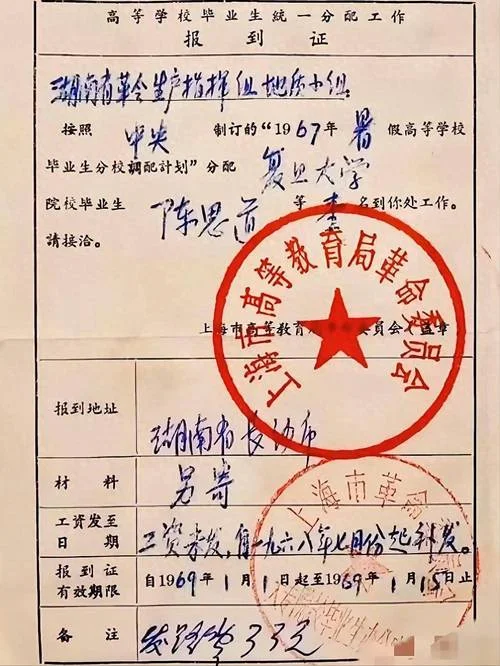 高等学校毕业生統一分配工作
报到证
湖南省革命生产指挥组地质小组
按照 中央 制订的“1967年 暑 假高等学校
毕业生分校調配計划”分配 复旦大学
院校毕业生 陈思道 等 壹 名到你处工作。
請接洽。
上海市高等教育局革命委员会
上海市高等教育 委員会 盖章
报到地址 湖南省长沙市
材料 另寄
工资发至日期 工资未发,自一九六八年七月份起补发。
报到证有效期限 自1969年1月1日起至1969年1月15日止
上海市革命
备注 发路费33元